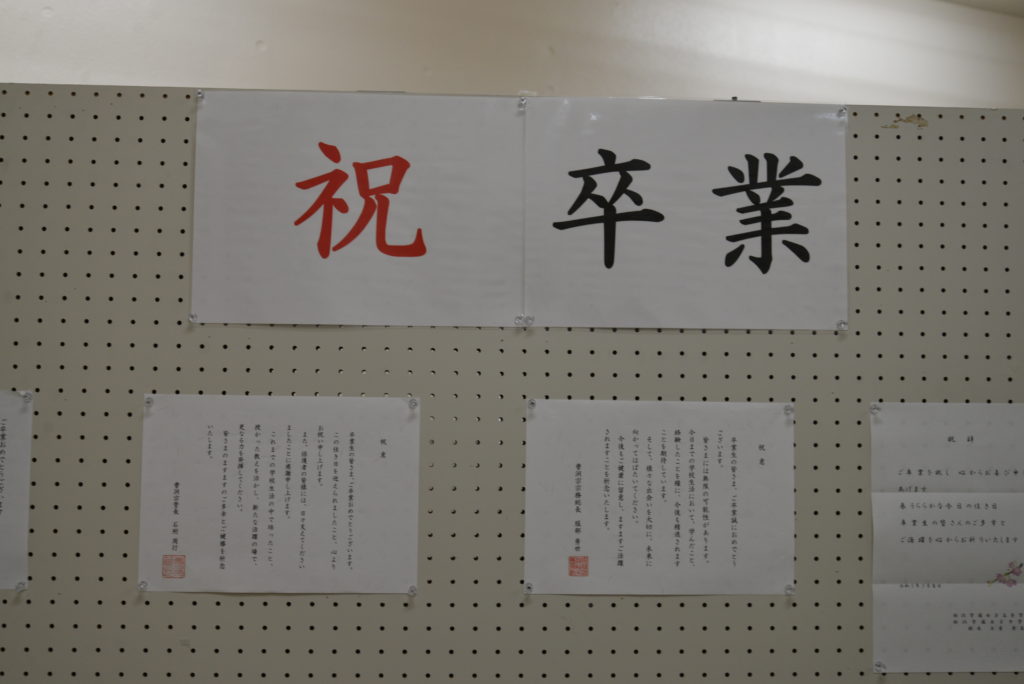 祝 卒業
ご卒業おめでとうございます
祝意
卒業生の皆さま、ご卒業おめでとうございます。
この佳き日を迎えられましたこと、心より
お祝い申し上げます。
また、保護者の皆様には、日々支えてください
ましたことに感謝申し上げます。
これまでの学校生活の中で培ったこと、
授かった教えを活かし、新たな活躍の場で、
更なる力を発揮してください。
皆さまのますますのご多幸とご健勝を祈念
いたします。
曹洞宗管長 石附 周行
祝意
卒業生の皆さま、ご卒業誠におめでとう
ございます。
皆さまには無限の可能性があります。
今日までの学校生活において、学んだこと、
経験したことを糧に、今後も精進されます
ことを期待しています。
そして、様々な出会いを大切に、未来に
向かってはばたいてください。
今後もご健康に留意し、ますますご活躍
されますことを祈念いたします。
曹洞宗宗務総長 服部 秀世
祝辞
ご卒業を祝し 心からお喜び申
あげます
春うららかな今日の佳き日
卒業生の皆さんのご多幸と
ご活躍を心からお祈りいたします